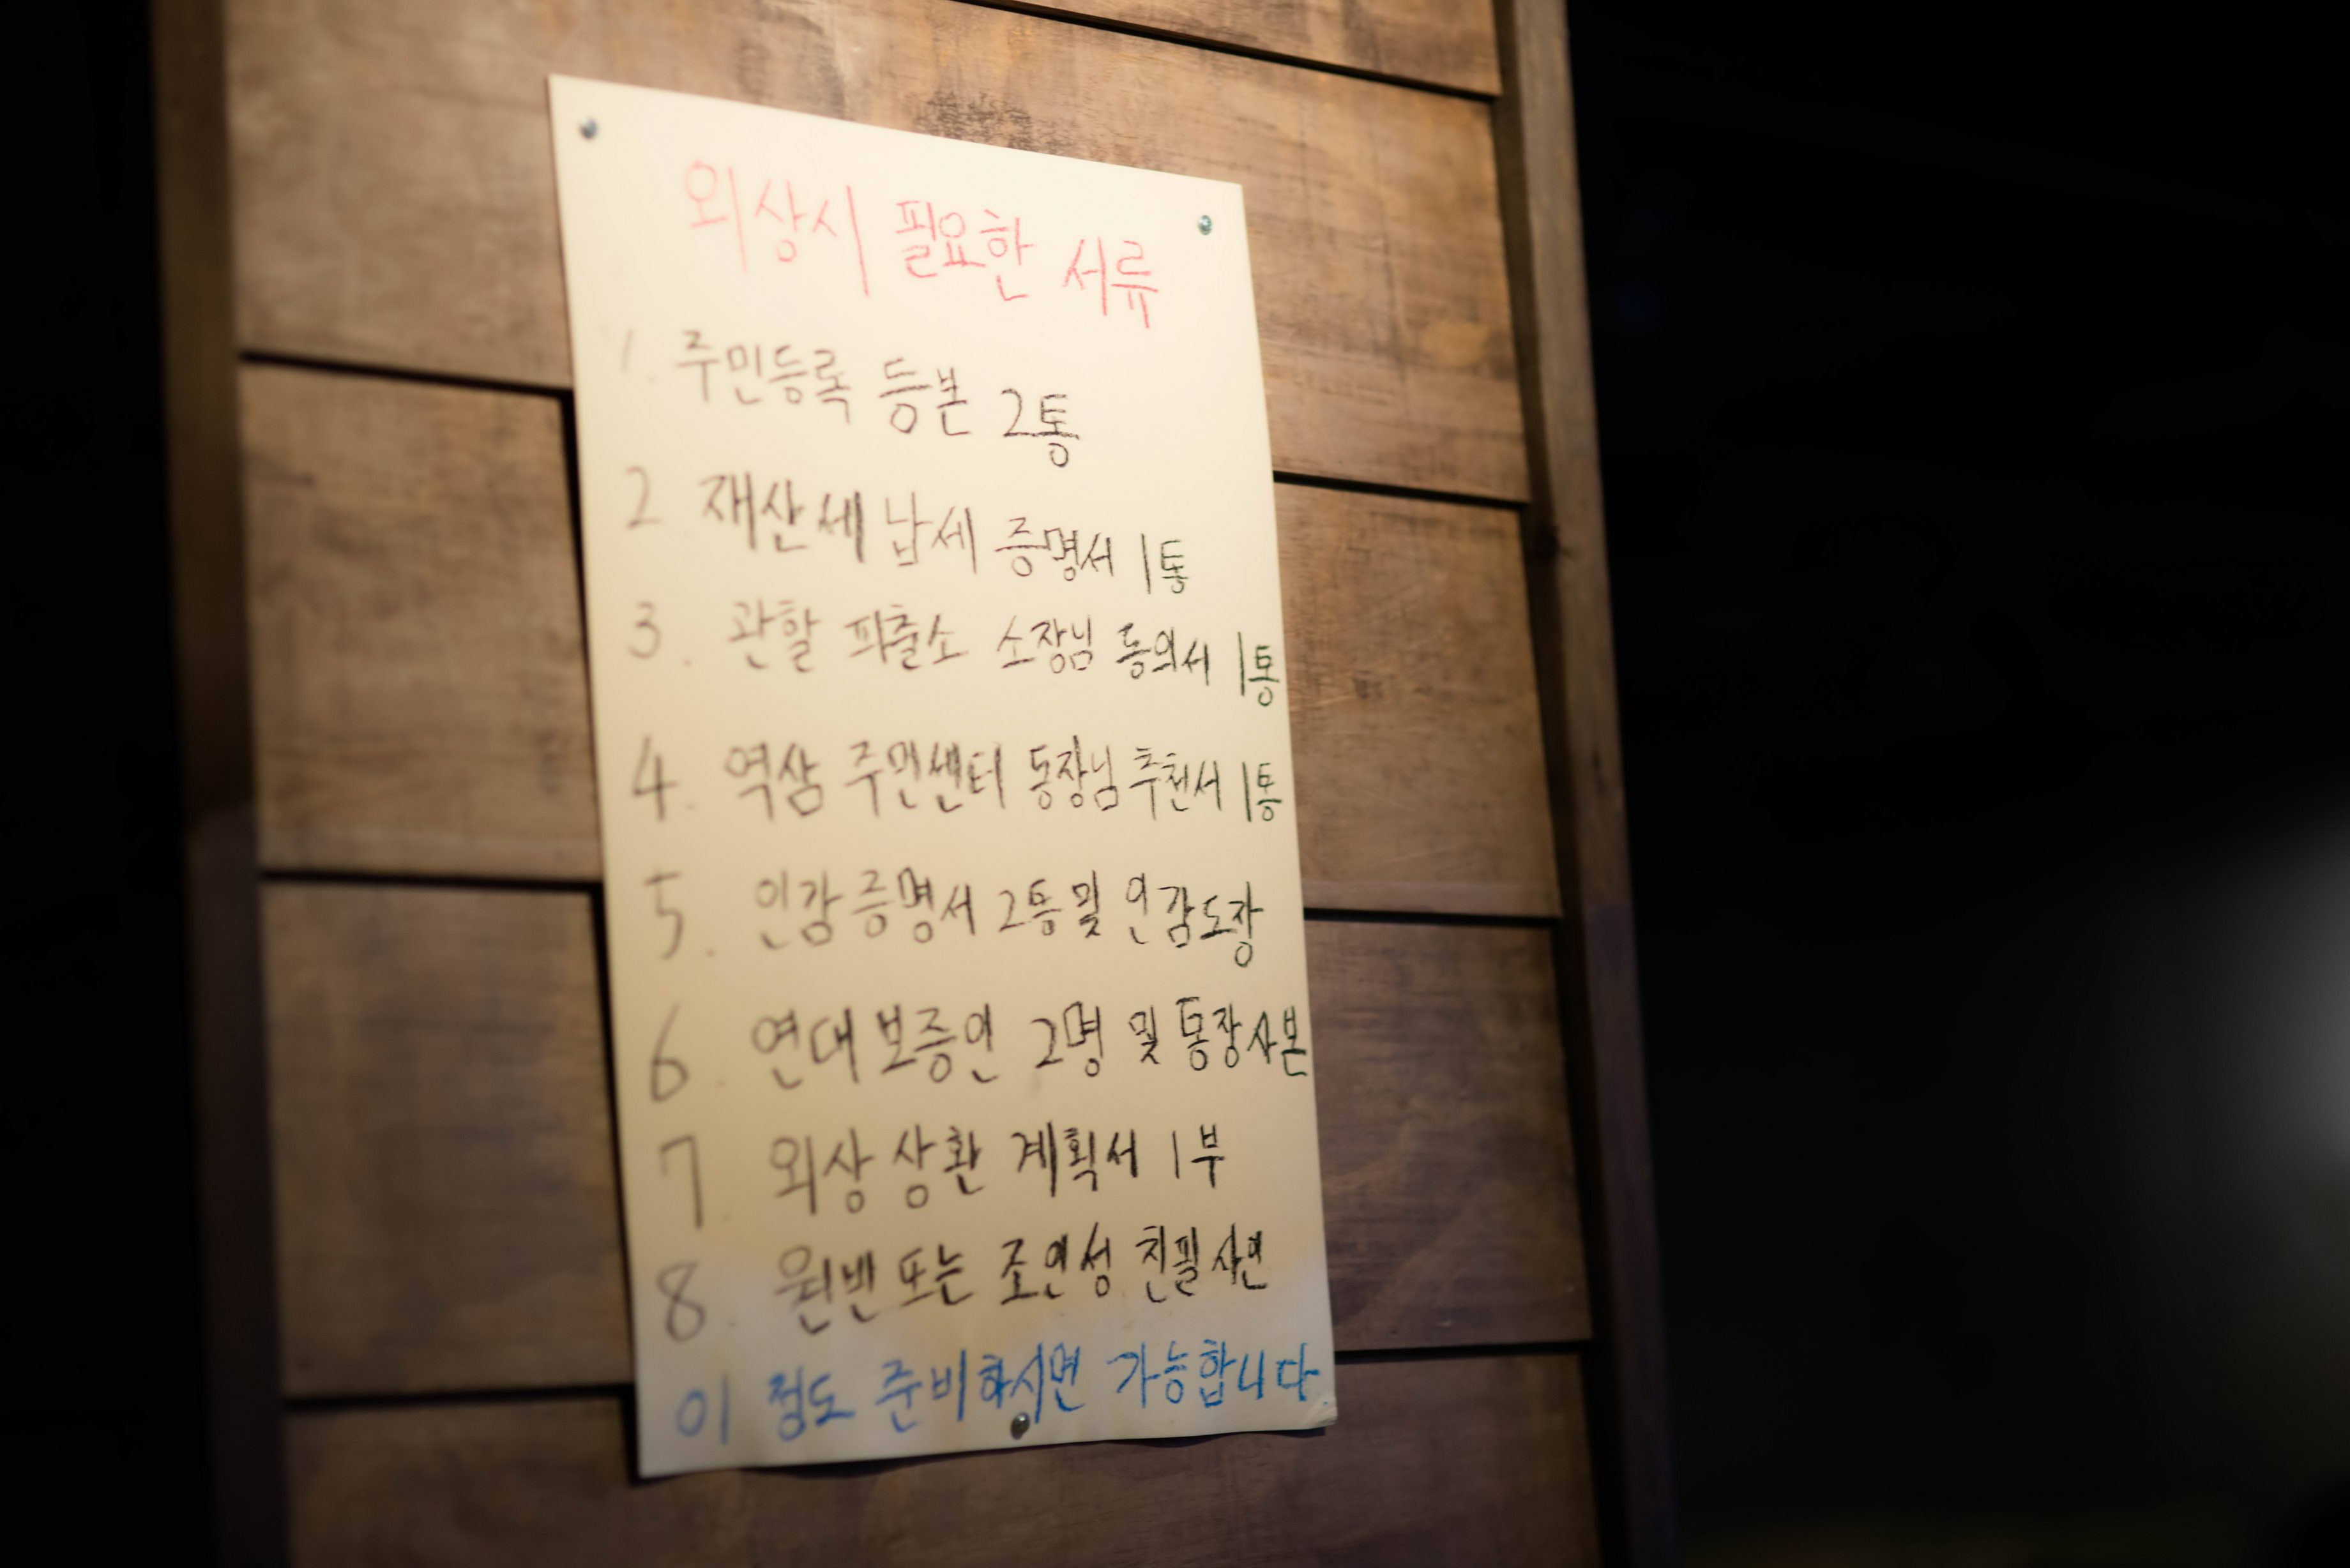 외상시 필요한 서류
1. 주민등록 등본 2통
2 재산세 납세 증명서 1통
3. 관할 파출소 소장님 동의서 1통
4. 역삼 주민센터 동장님 추천서 1통
5. 인감증명서 2통 및 인감도장
6. 연대보증인 2명 및 통장사본
7. 외상 상환 계획서 1부
8. 원빈 또는 조인성 친필 사인
이 정도 준비하시면 가능합니다.